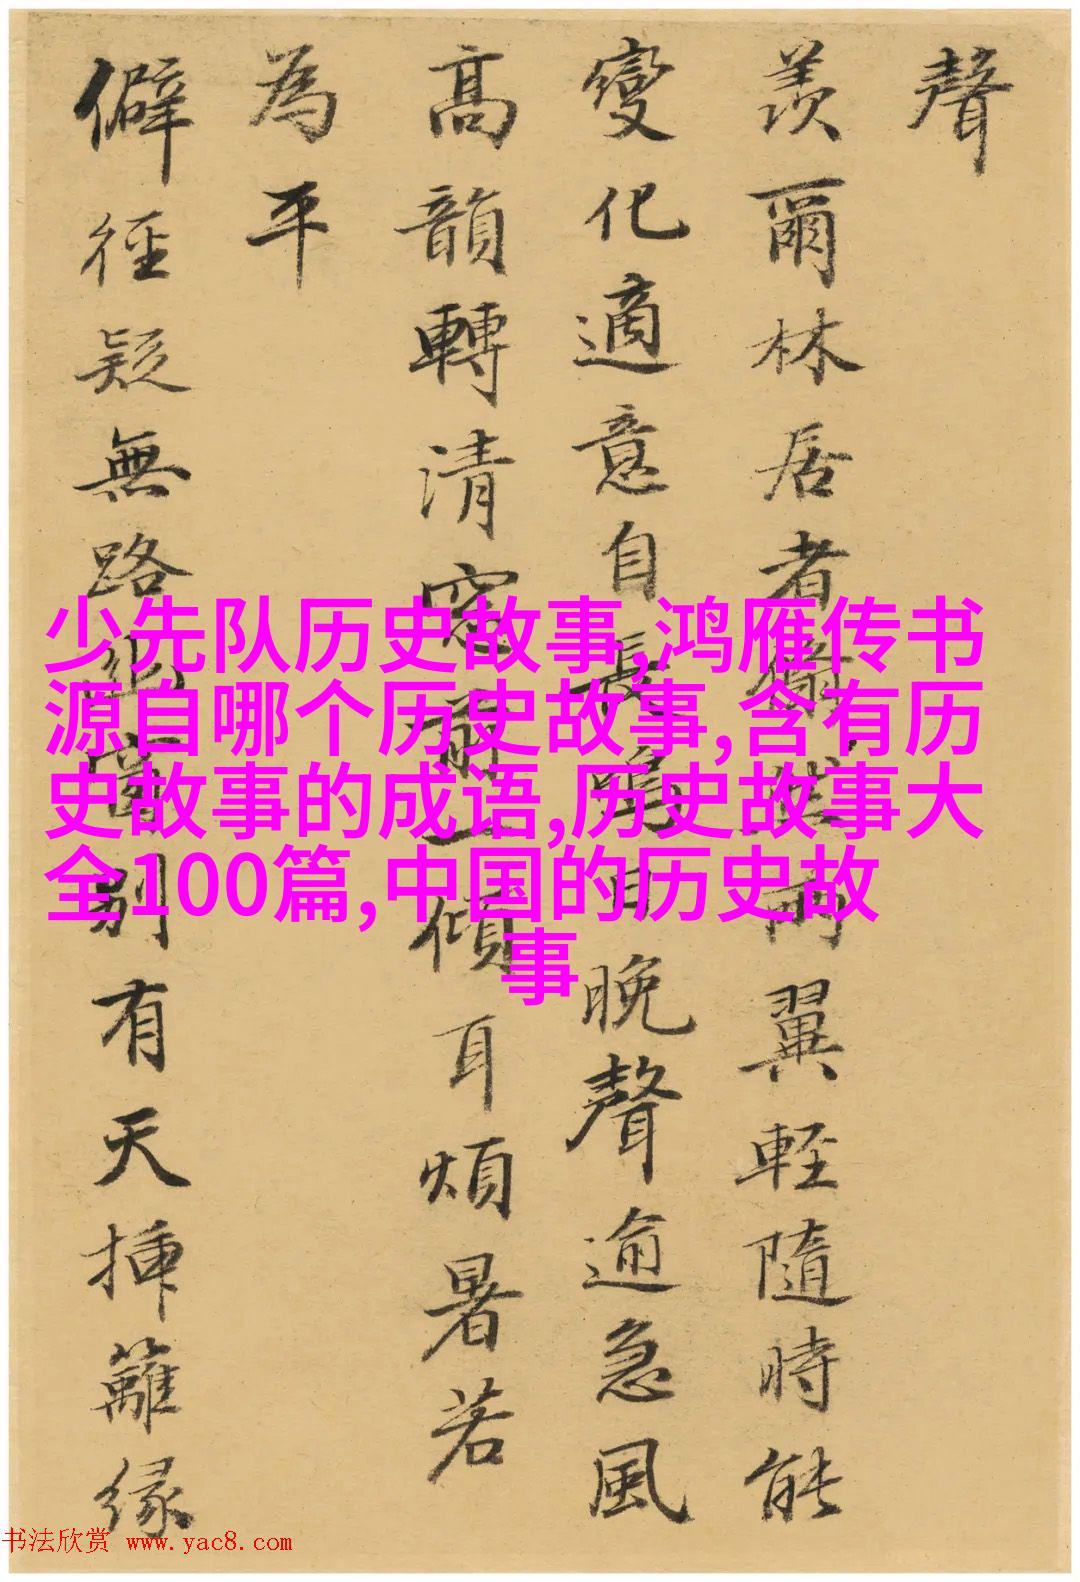 聲
羨爾林居者然兩翼輕隨時能
變化適意自長鳴日晚聲逾急風
高韻轉清窓前一傾耳煩暑若
為平
僻徑疑無路幽別有天揷籬緣
少先队历史故事,鸿雁传书
源自哪个历史故事,含有历
史故事的成语,历史故事大
全100篇,中国的历史故
事
书法欣赏 www.yac8.com